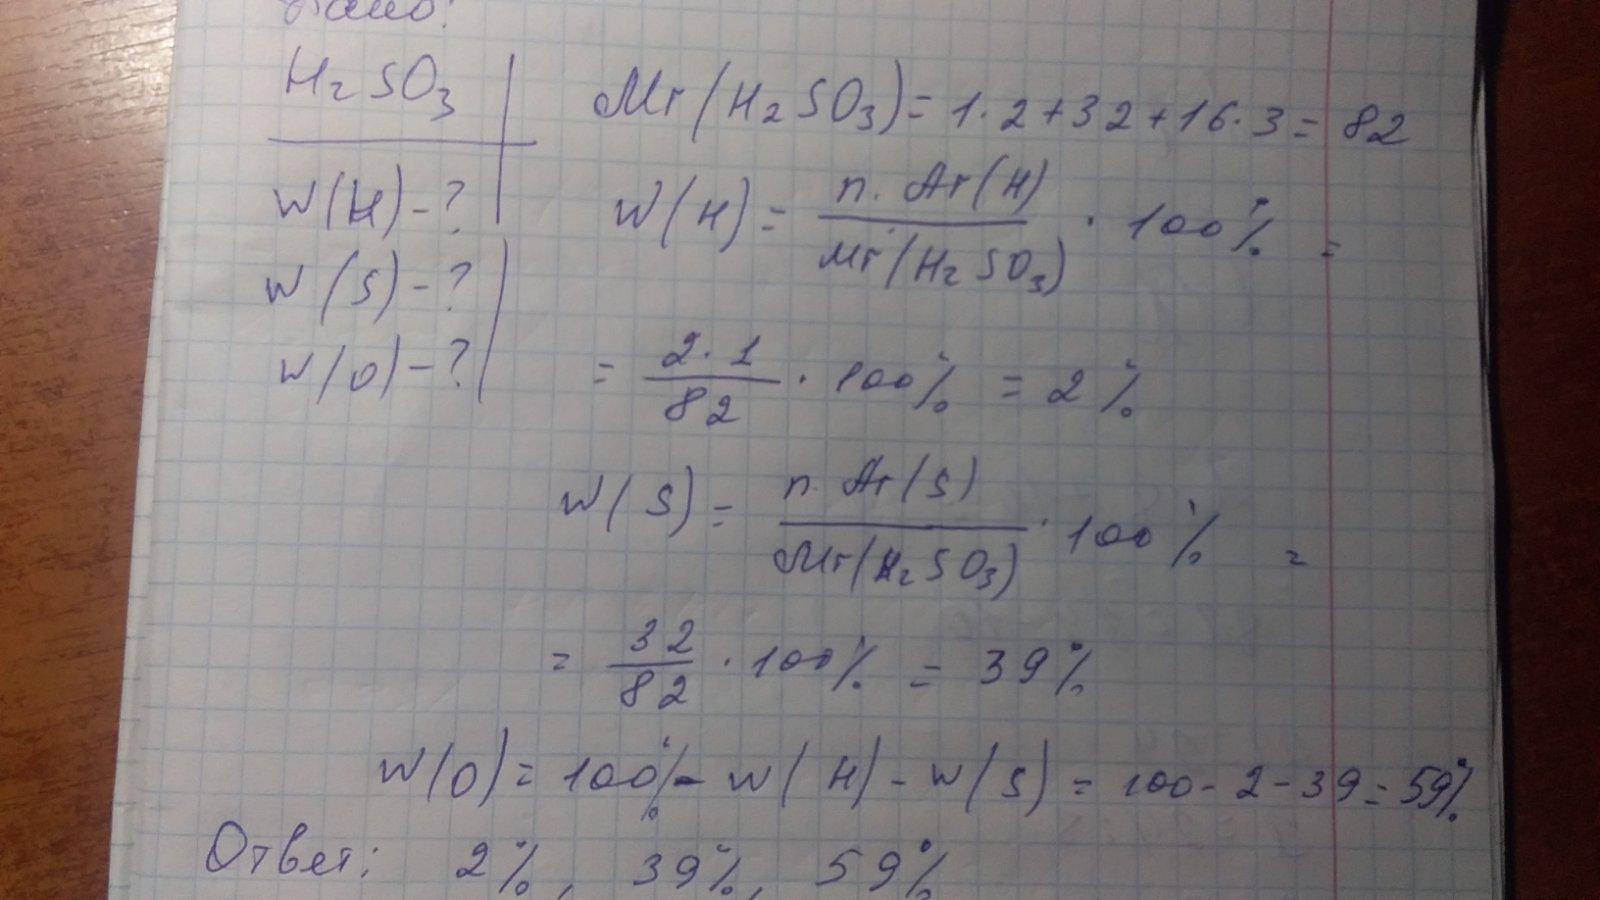 Дано:
H₂SO₃
W(H)-?
W(S)-?
W(O)-?
Mr(H₂SO₃)=1·2+32+16·3=82
W(H)= n·Ar(H)/Mr(H₂SO₃) · 100% =
= 2·1/82 · 100% = 2%
W(S)= n·Ar(S)/Mr(H₂SO₃) · 100% =
= 32/82 · 100% = 39%
W(O)=100%-W(H)-W(S)=100-2-39=59%
Ответ: 2%, 39%, 59%